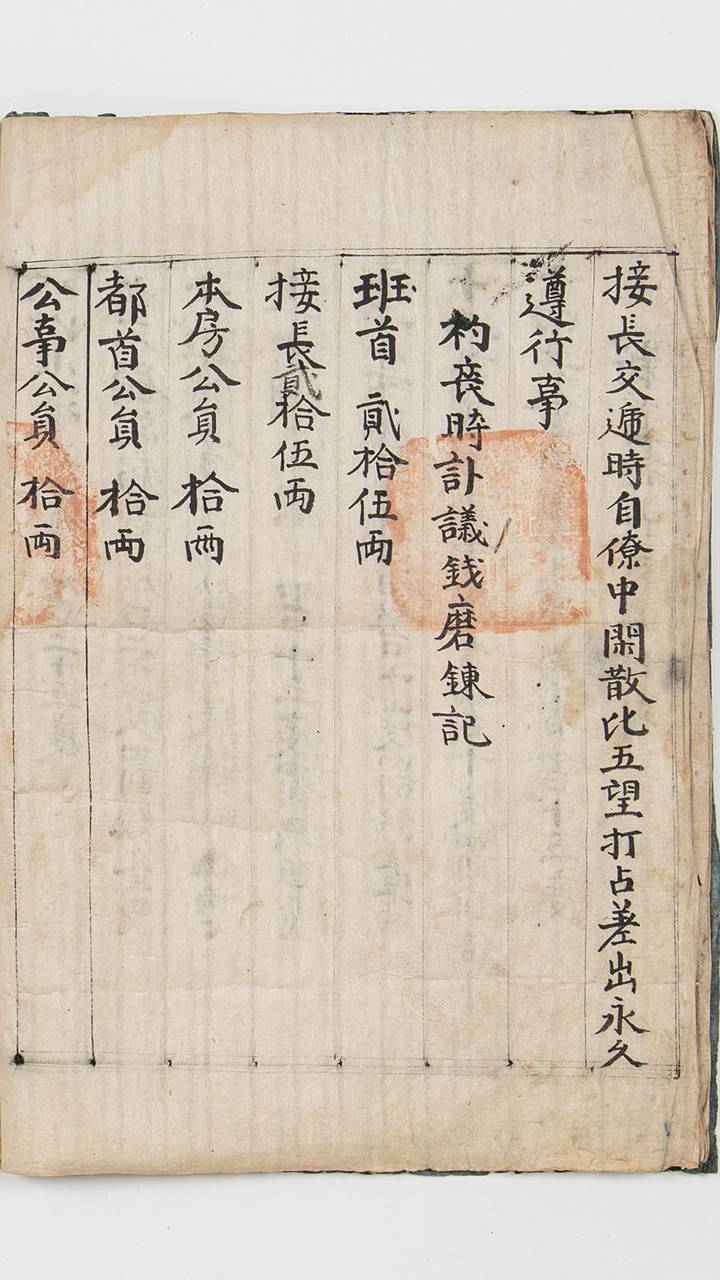 接長交遞時自僚中閑散比五望打占差出永久
遵行事
初喪時訃議錢磨鍊記
班首 貳拾伍両
接長貳拾伍両
本房公員 拾両
都首公員 拾両
公事公員 拾両